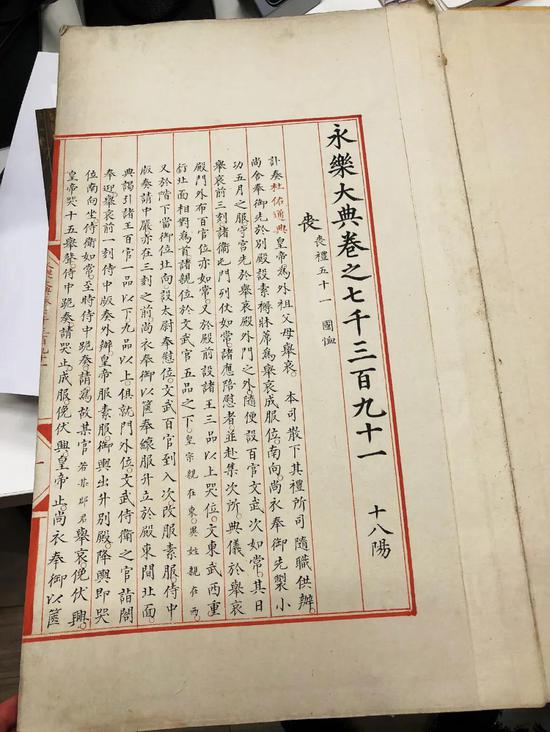 永樂大典卷之七千三百九十一 十八陽
喪 喪禮五十一 國恤
訃奏杜佑通典皇帝為外祖父母舉哀。本司散下其禮所司隨職供辦。
尚舍奉御先於別殿設素褥牀席為舉哀成服位。南向尚衣奉御先製小
功五月之服守宮先於舉哀殿外門之外隨便設百官文武次如常。其日
舉哀前三刻諸衛屯門列仗如常。諸應陪慰者並赴集次所。典儀於舉哀
殿門外布百官位亦如常。又於殿前設諸王三品以上哭位。文東武西重
行北面相對為首諸親位於文武官五品之下。皇宗親在東。異姓親在西
又於階下當御位北向設太尉奉慰位。文武百官到入次改服素服。侍中
版奏請中嚴亦在三刻之前尚衣奉御以篋奉縗服升立於殿東間北面。
典謁引諸王百官一品以下九品以上。俱就門外位。文武侍衛之官詣閤
奉迎舉哀前一刻侍中版奏外辦皇帝素服御輿出升別殿。降輿即哭
位南向坐侍衛如常。至時侍中跪奏。請為故某官若某郡君舉哀俛伏興。
皇帝哭十五舉聲。侍中跪奏請哭止。成服俛伏興。皇帝止。尚衣奉御以篋